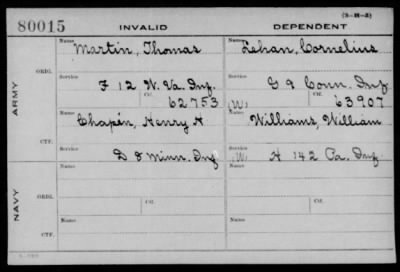 (3-M-3)
80015 INVALID DEPENDENT
Name Martin, Thomas Name Lehan, Cornelius
ORIG.
Service F 12 W. Va. Inf. Service G 9 Conn. Inf
Ctf. 62753 (W) Ctf. 63907
ARMY
Name Chapin, Henry A Name Williams, William
CTF.
Service D 8 Minn. Inf Service (W) H 142 Pa. Inf
Name Name
ORIG.
Ctf. Ctf.
NAVY
Name Name
CTF.